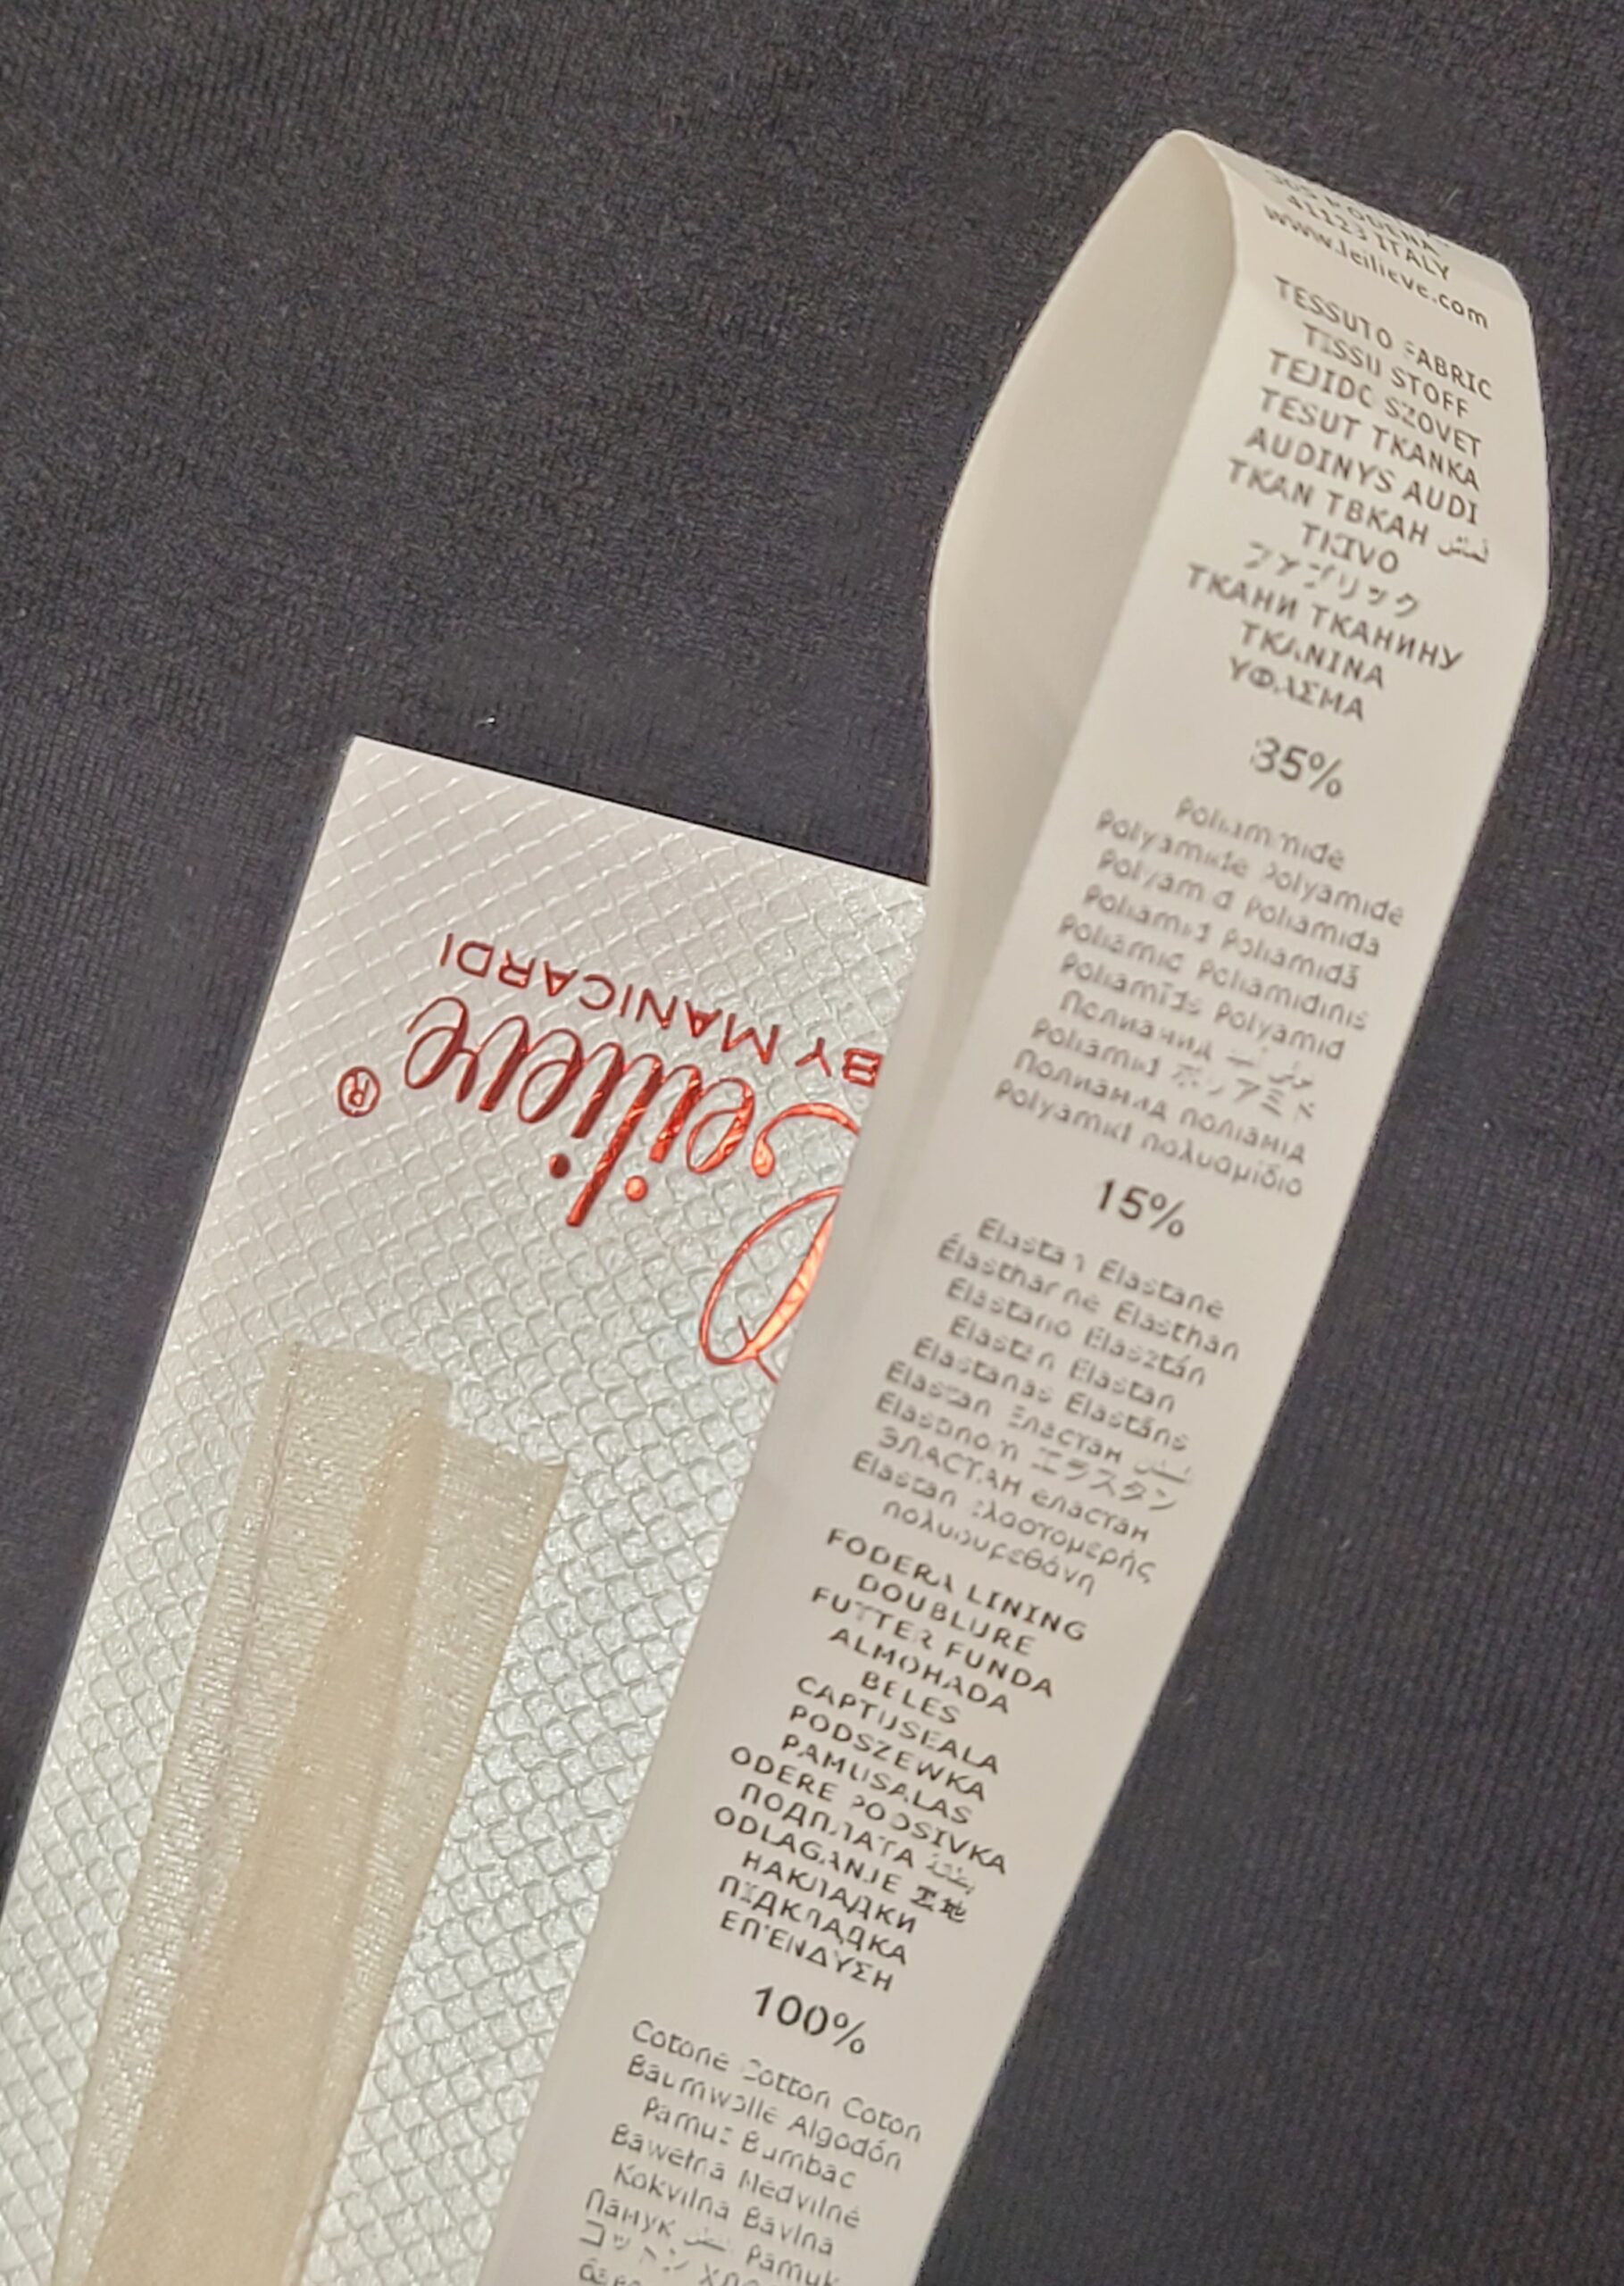 41123 ITALY
www.leilieve.com
TESSUTO FABRIC
TISSU STOFF
TEJIDO SZOVET
TESUT TKANKA
AUDINYS AUDI
TKAN ТВКАН قماش
TKIVO
ファブリック
ТКАНИ ТКАНИНУ
TKANINA
ΥΦΑΣΜΑ
85%
Poliammide
Polyamide Polyamide
Polyamid Poliamida
Poliamid Poliamidă
Poliamid Poliamidinis
Poliamīds Polyamid
Полиамид
Poliamid ポリアミド
Полиамид поліамід
Polyamid πολυαμίδιο
15%
Elastan Elastane
Élasthanne Elasthan
Elastano Elasztán
Elastan Elastan
Elastanas Elastāns
Elastan Еластан
Elastinom エラスタン
ЭЛАСТАН еластан
Elastan ελαστομερής
πολυουρεθάνη
FODERA LINING
DOUBLURE
FUTTER FUNDA
ALMOHADA
BELES
CAPTUSEALA
PODSZEWKA
PAMUSALAS
ODERE PODSIVKA
ПОДПЛАТА بطانة
ODLAGANJE
НАКЛАДКИ
ПІДКЛАДКА
ΕΠΕΝΔΥΣΗ
100%
Cotone Cotton Coton
Baumwolle Algodón
Pamut Bumbac
Bawełna Medvilnė
Kokvilna Bavlna
Памук قطن Pamuk
コットン
Leilieve®
BY MANICARDI